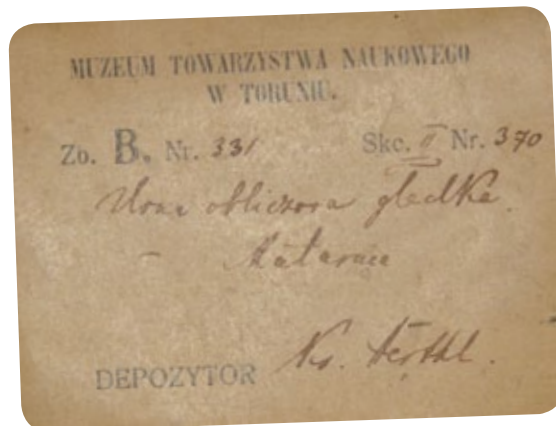 MUZEUM TOWARZYSTWA NAUKOWEGO
W TORUNIU.
Zb. B. Nr. 331 Skc. II Nr. 370
Urna obliczona gładka.
DEPOZYTOR Ks.